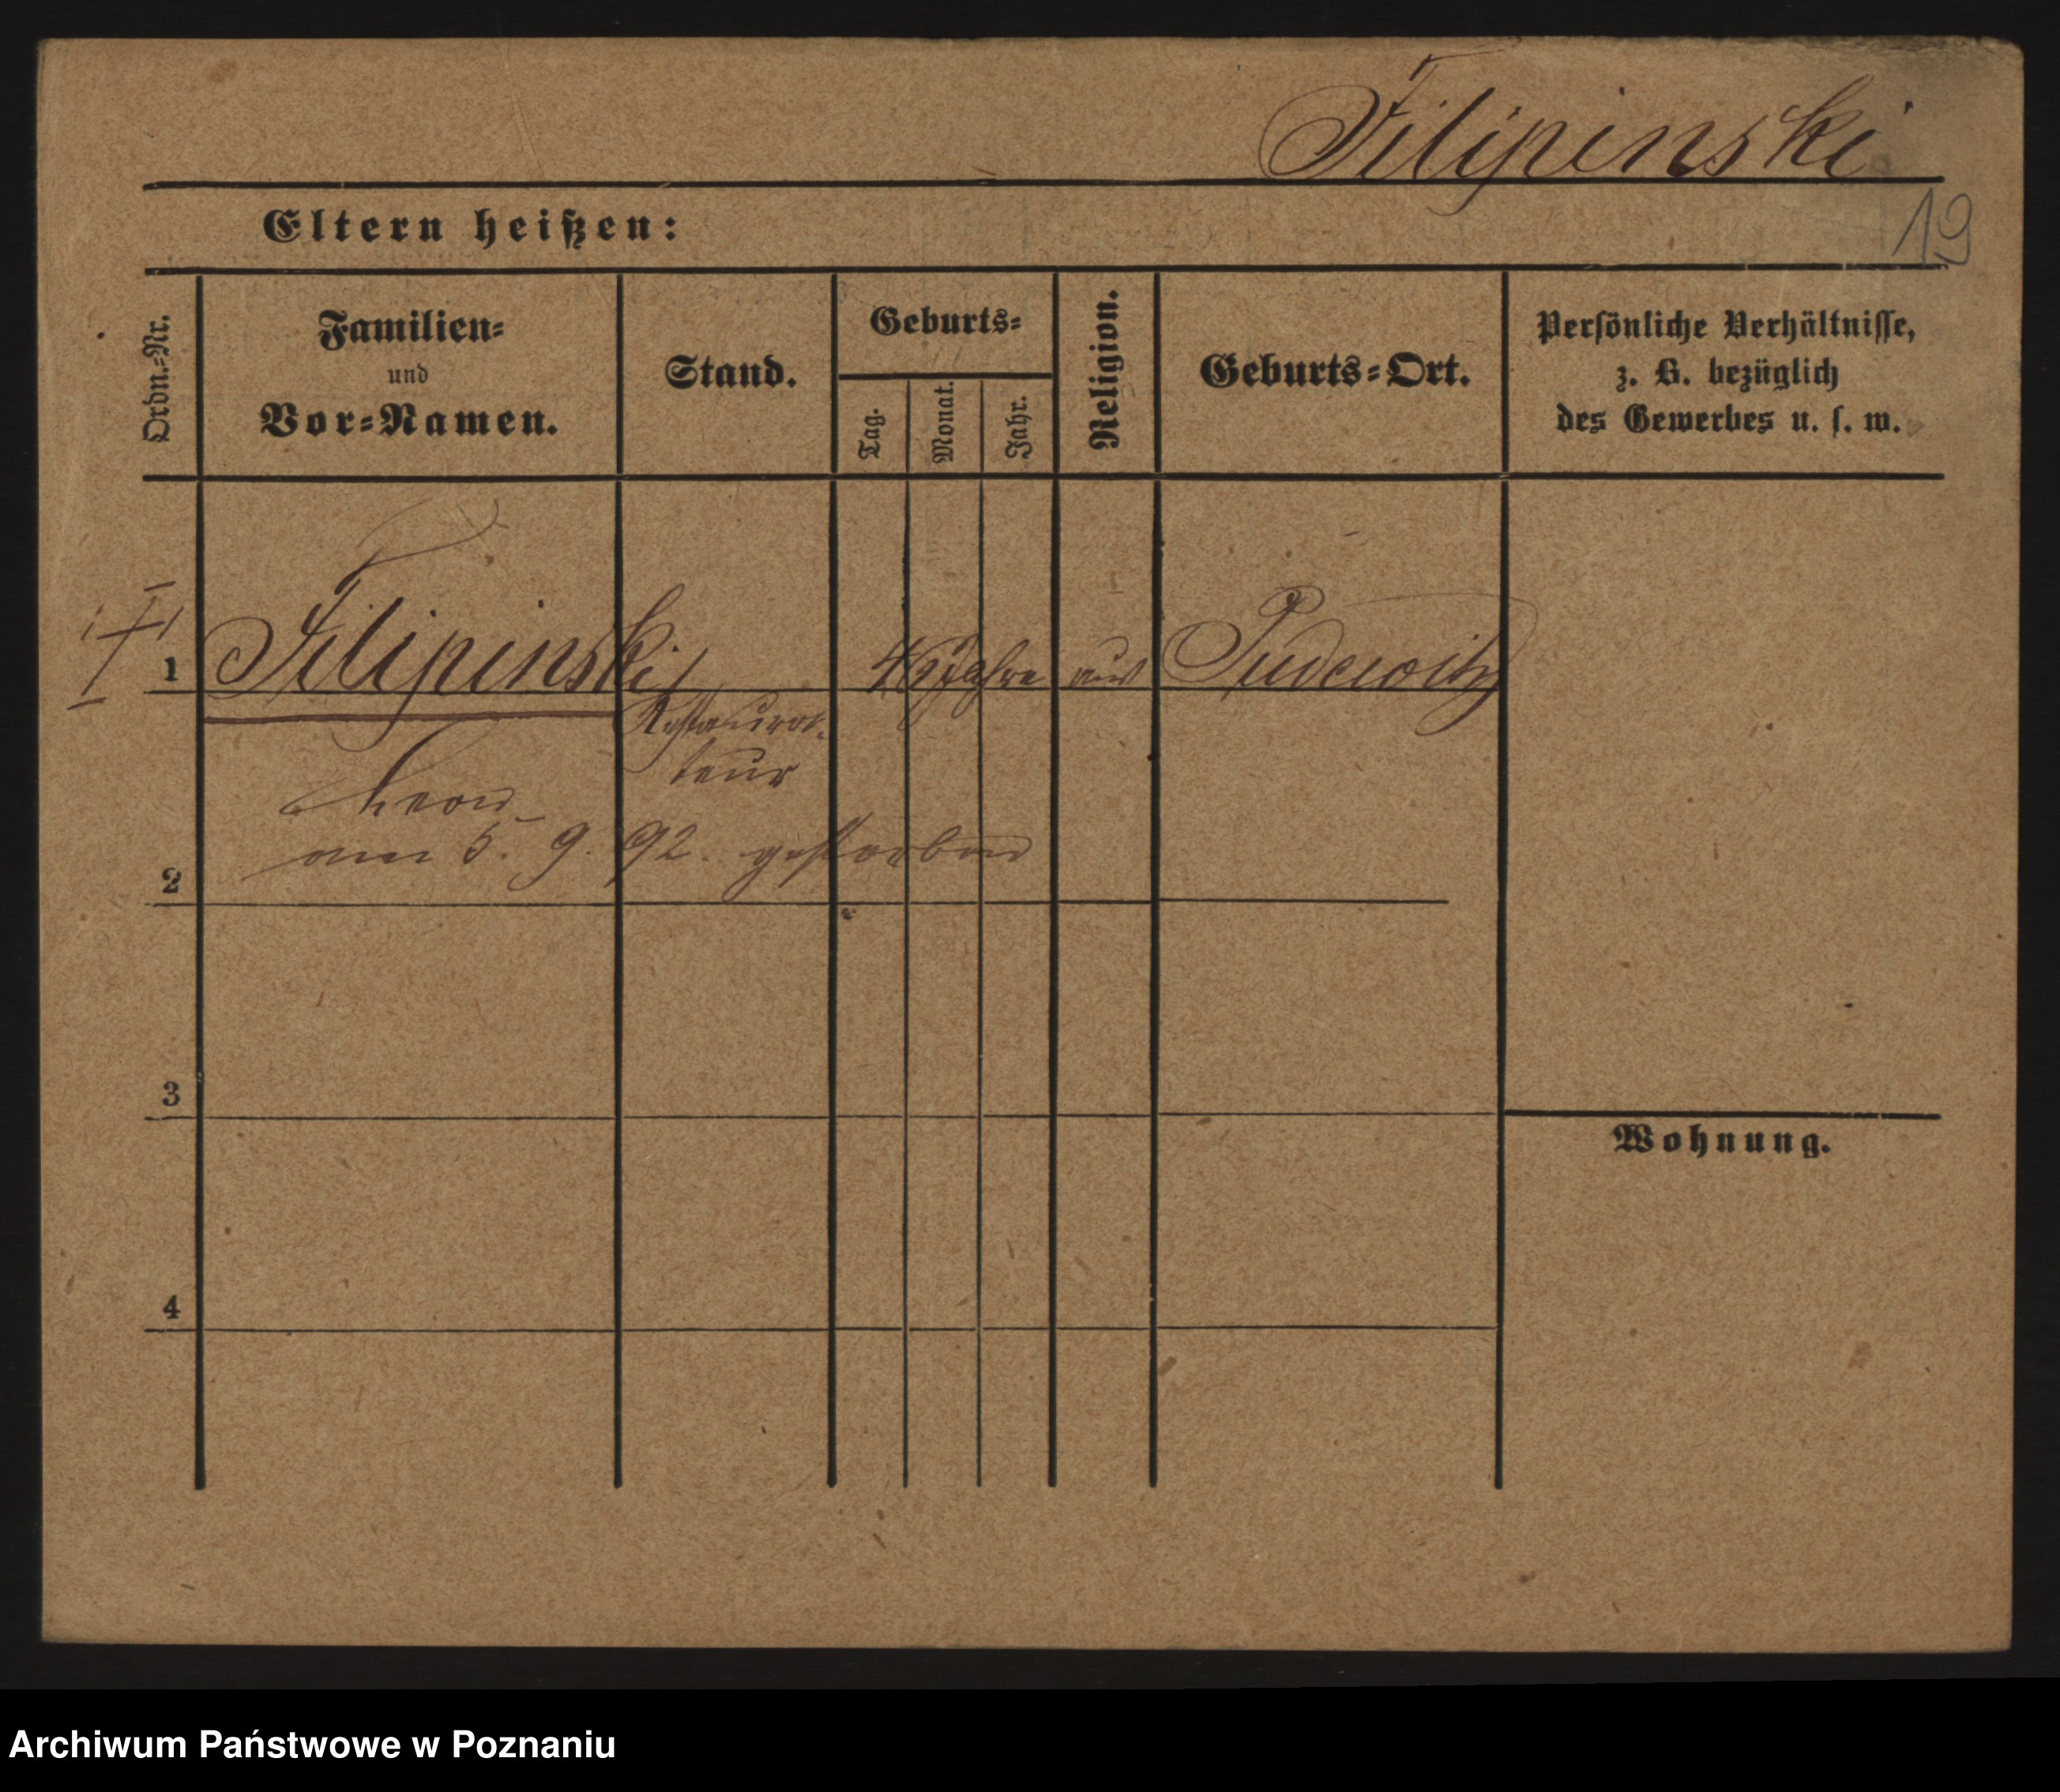 Filipinski
19
Eltern heißen:
Ordn.-Nr.
Familien-
und
Vor-Namen.
Stand.
Geburts-
Tag.
Monat.
Jahr.
Religion.
Geburts-Ort.
Persönliche Verhältnisse,
z. B. bezüglich
des Gewerbes u. s. w.
1 Filipinski 46 Jahre aus Pudewitz
Restaura-
teur
Leon
am 5. 9. 92. gestorben
2
3
Wohnung.
4
Archiwum Państwowe w Poznaniu